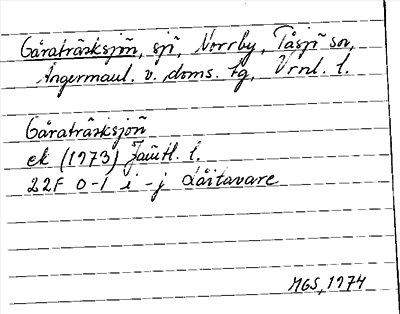 Gåraträsksjön, sjö, Norrby, Tåsjö sn,
Ångermanl. v. doms. tg, Vrnl. l.
Gåraträsksjön
ek (1973) Jämtl. l.
22F 0-1 i-j Låitavare
MGS, 1974